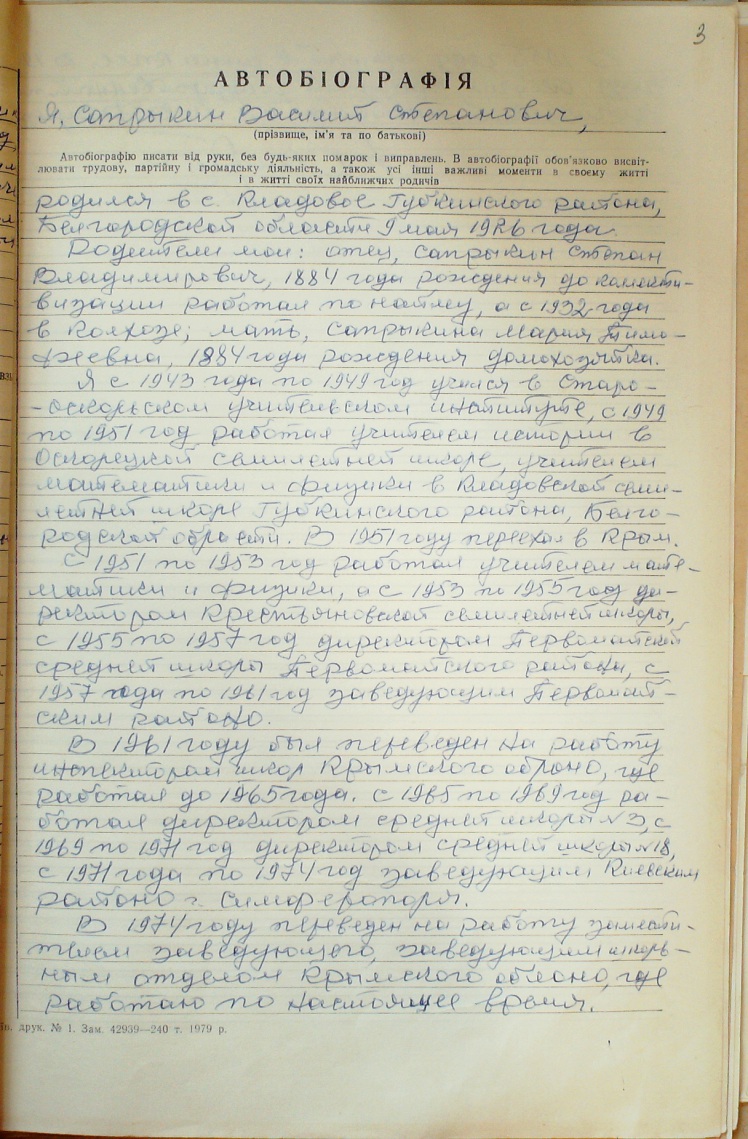 3
АВТОБІОГРАФІЯ
Я, Сапрыкин Василий Степанович,
(прізвище, ім'я та по батькові)
Автобіографію писати від руки, без будь-яких помарок і виправлень. В автобіографії обов'язково висвіт-
лювати трудову, партійну і громадську діяльність, а також усі інші важливі моменти в своєму житті
і в житті своїх найближчих родичів
родился в с. Кладовое Губкинского района,
Белгородской области 9 мая 1926 года.
Родители мои: отец, Сапрыкин Степан
Владимирович, 1884 года рождения до коллекти-
визации работал по найму, а с 1932 года
в колхозе; мать, Сапрыкина Мария Тимо-
феевна, 1884 года рождения домохозяйка.
Я с 1943 года по 1949 год учился в Старо-
-оскольском учительском институте, с 1949
по 1951 год работал учителем истории в
Оскорецкой семилетней школе, учителем
математики и физики в Кладовской семи-
летней школе Губкинского района, Белго-
родской области. В 1951 году переехал в Крым.
С 1951 по 1953 год работал учителем мате-
матики и физики, а с 1953 по 1955 год ди-
ректором Крестьяновской семилетней школы,
с 1955 по 1957 год директором Первомайской
средней школы Первомайского района, с
1957 года по 1961 год заведующим Первомай-
ским районо.
В 1961 году был переведен на работу
инспектором школ Крымского облоно, где
работал до 1965 года. С 1965 по 1969 год ра-
ботал директором средней школы №3, с
1969 по 1971 год директором средней школы №18,
с 1971 года по 1974 год заведующим Киевским
районо г. Симферополя.
В 1974 году переведен на работу замести-
телем заведующего, заведующим школь-
ным отделом Крымского облоно, где
работаю по настоящее время.
друк. № 1. Зам. 42939—240 т. 1979 р.